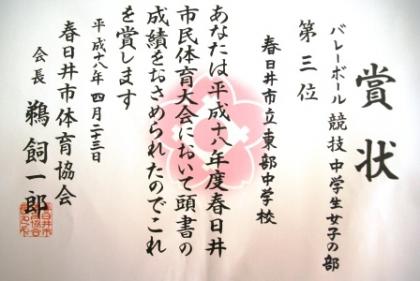 賞状
バレーボール競技中学生女子の部
第三位
春日井市立東部中学校
あなたは平成十八年度春日井
市民体育大会において頭書の
成績をおさめられたのでこれ
を賞します
平成十八年四月二十三日
春日井市体育協会
会長 鵜飼一郎